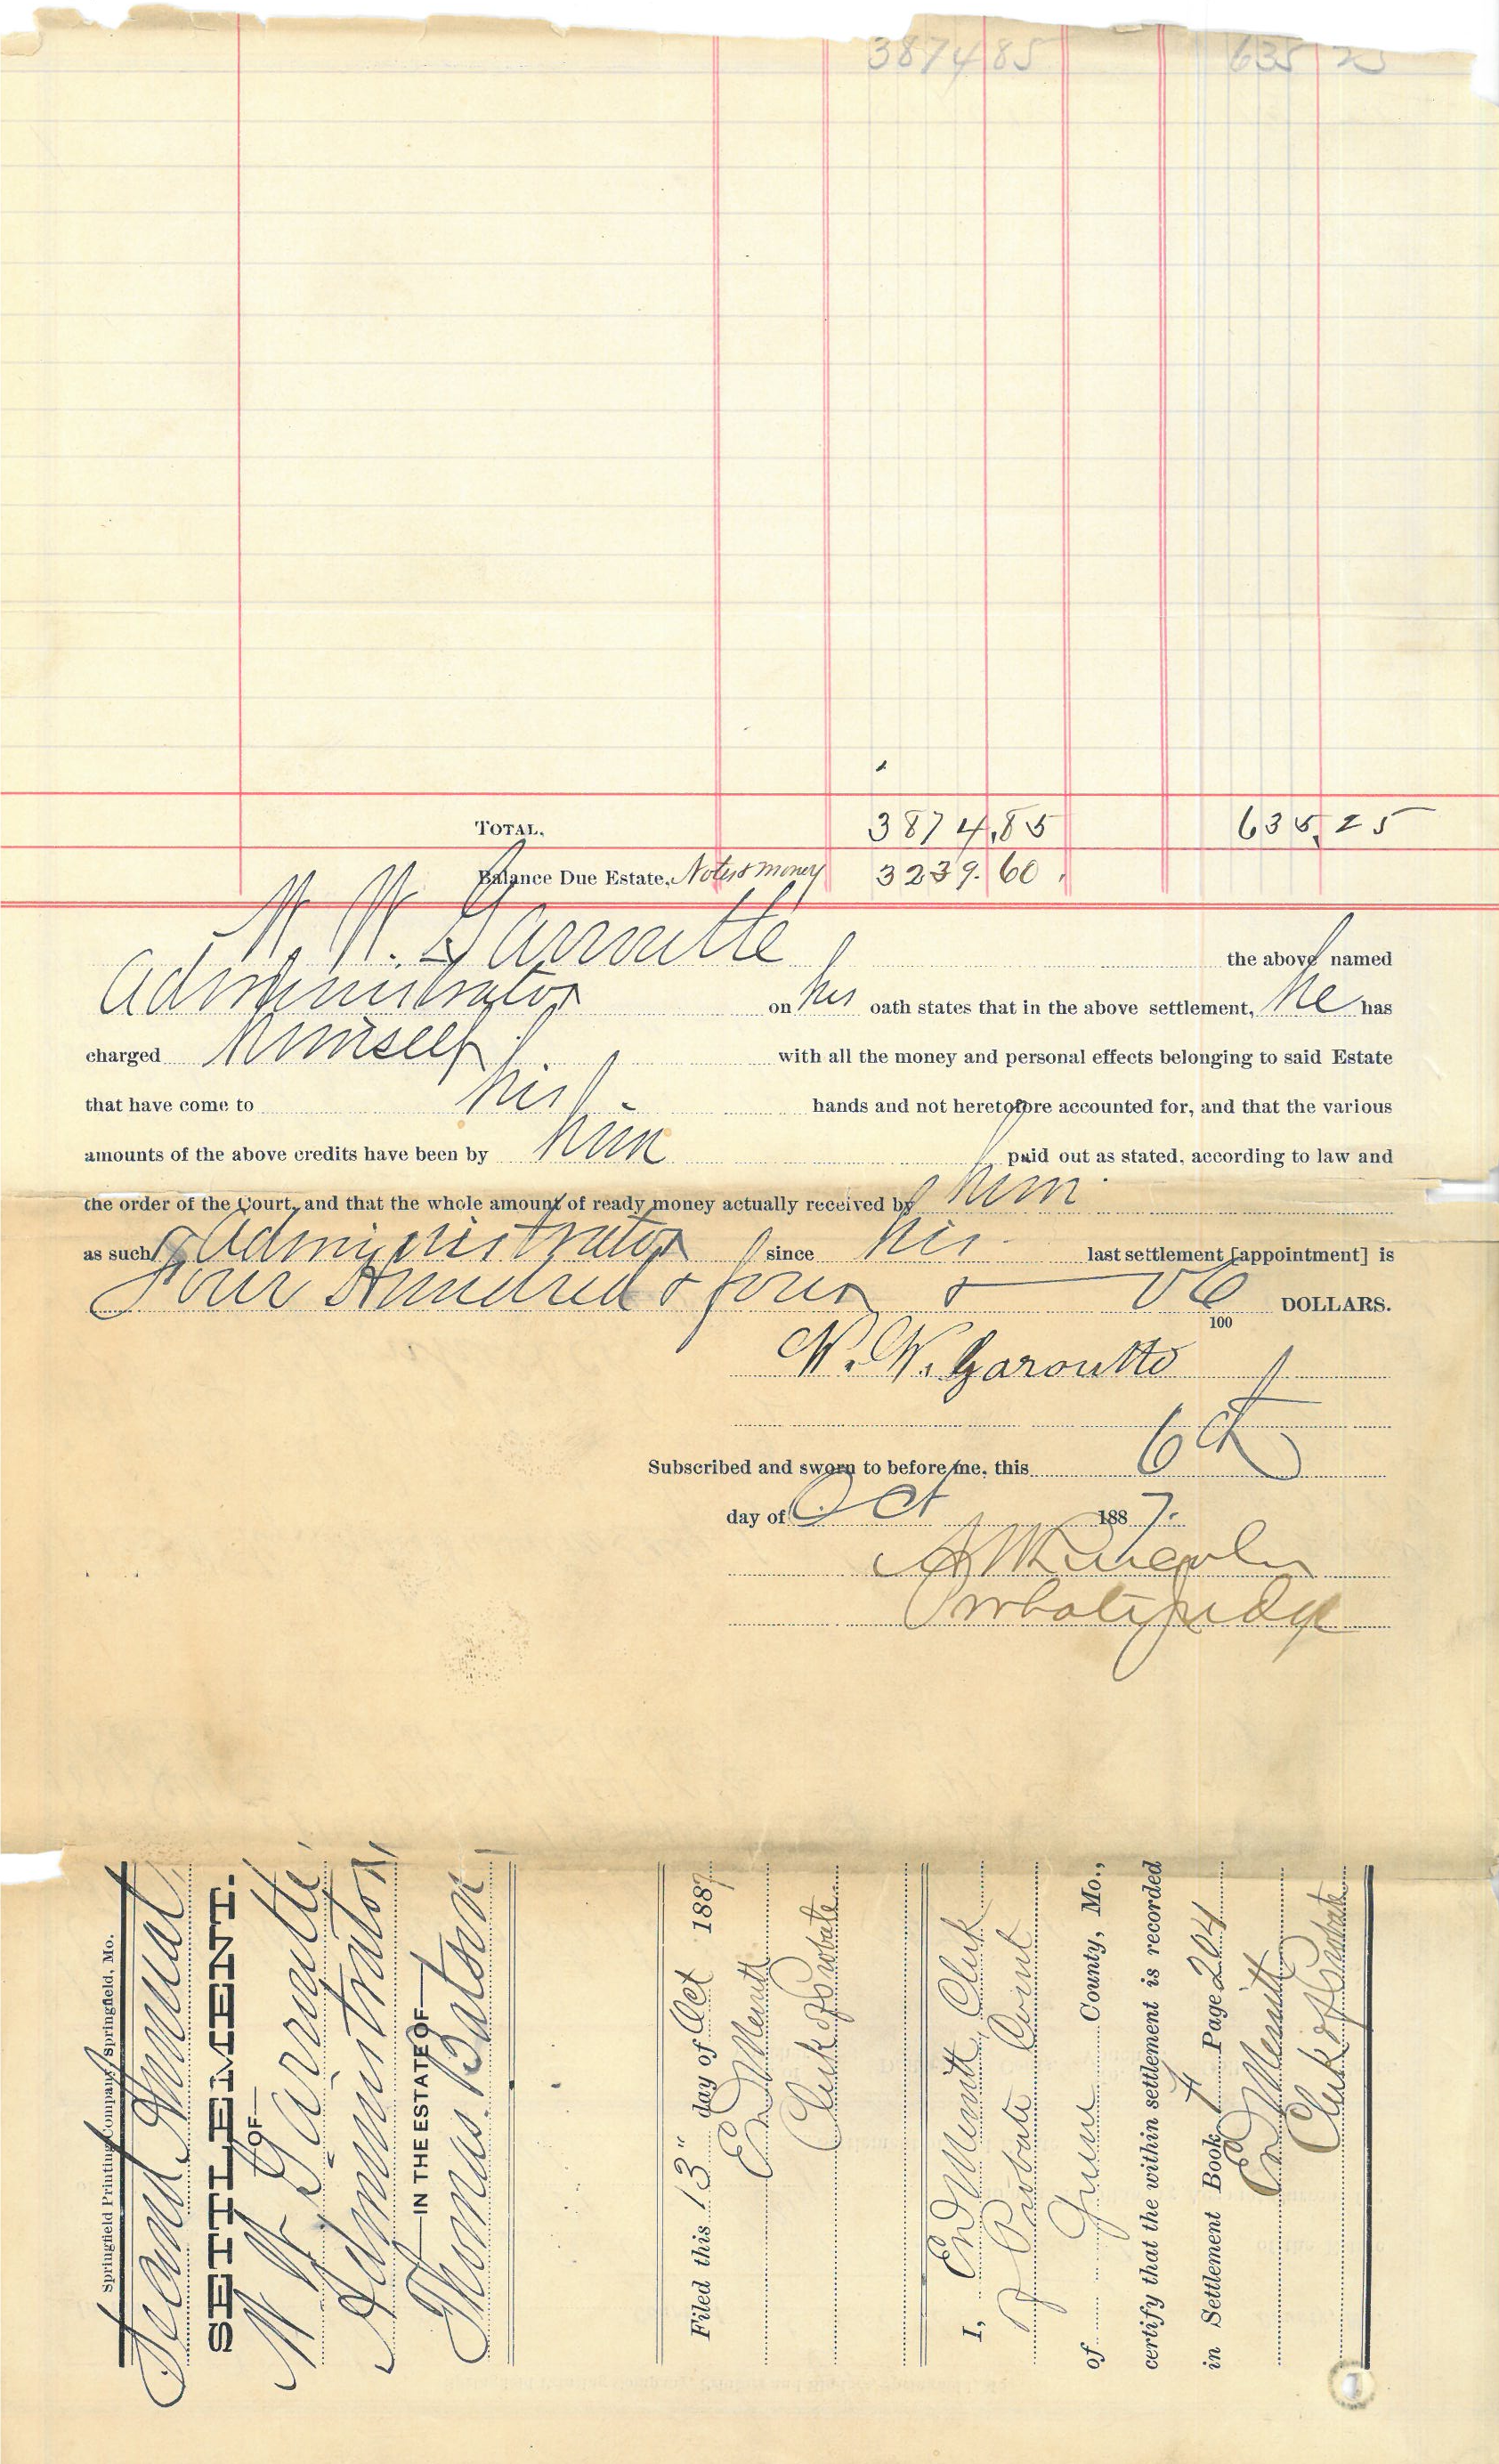 3874 85 635 25
TOTAL, 3874.85 635.25
Balance Due Estate, Notes & money 3239.60
N. W. Garroutte the above named
Administrator on his oath states that in the above settlement, he has
charged himself with all the money and personal effects belonging to said Estate
that have come to his hands and not heretofore accounted for, and that the various
amounts of the above credits have been by him paid out as stated, according to law and
the order of the Court, and that the whole amount of ready money actually received by him
as such Administrator since his last settlement [appointment] is
Four Hundred & four & 06/100 DOLLARS.
N. W. Garoutte
Subscribed and sworn to before me, this 6th
day of Oct 1887.
Probate Judge
Springfield Printing Company, Springfield, Mo.
Second Annual
SETTLEMENT.
—OF—
N W Garroutte
Administrator
—IN THE ESTATE OF—
Thomas Batson
Filed this 13" day of Oct 1887
Ed Merritt
Clerk of Probate
I, Ed Merritt Clerk
of Probate Court
of Green County, Mo.,
certify that the within settlement is recorded
in Settlement Book 4 Page 204
Ed Merritt
Clerk of Probate